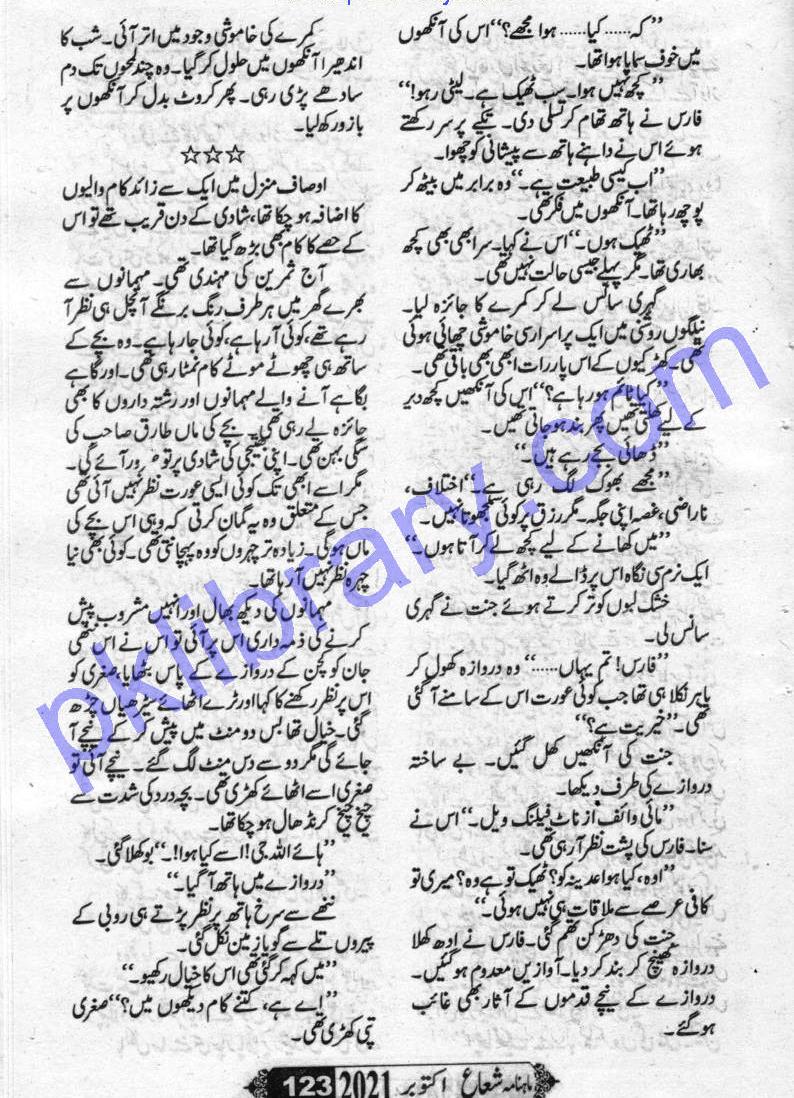 ’’کہ...... کیا...... ہوا مجھے؟‘‘ اس کی آنکھوں
میں خوف سمایا ہوا تھا۔
’’کچھ نہیں ہوا۔ سب ٹھیک ہے۔ لیٹی رہو!‘‘
فارس نے ہاتھ تھام کر تسلی دی۔ تکیے پر سر رکھتے
ہوئے اس نے داہنے ہاتھ سے پیشانی کو چھوا۔
’’اب کیسی طبیعت ہے۔‘‘ وہ برابر میں بیٹھ کر
پوچھ رہا تھا۔ آنکھوں میں فکر تھی۔
’’ٹھیک ہوں۔‘‘ اس نے کہا۔ سر ابھی بھی کچھ
بھاری تھا۔ مگر پہلے جیسی حالت نہیں تھی۔
گہری سانس لے کر کمرے کا جائزہ لیا۔
نیلگوں روشنی میں ایک پراسراری خاموشی چھائی ہوئی
تھی۔ کھڑکیوں کے اس پار رات ابھی بھی باقی تھی۔
’’کیا ٹائم ہو رہا ہے؟‘‘ اس کی آنکھیں کچھ دیر
کے لیے کھلتی تھیں پھر بند ہو جاتی تھیں۔
’’ڈھائی بجے رہے ہیں۔‘‘
’’مجھے بھوک لگ رہی ہے۔‘‘ اختلاف،
ناراضی، غصہ اپنی جگہ۔ مگر رزق پر کوئی سمجھوتا نہیں۔
’’میں کھانے کے لیے کچھ لے کر آتا ہوں۔‘‘
ایک نرم سی نگاہ اس پر ڈالے وہ اٹھ گیا۔
خشک لبوں کو تر کرتے ہوئے جنت نے گہری
سانس لی۔
’’فارس! تم یہاں......‘‘ وہ دروازہ کھول کر
باہر نکلا ہی تھا جب کوئی عورت اس کے سامنے آ گئی
تھی۔ ’’خیریت ہے؟‘‘
جنت کی آنکھیں کھل گئیں۔ بے ساختہ
دروازے کی طرف دیکھا۔
’’مائی وائف از ناٹ فیلنگ ویل۔‘‘ اس نے
سنا۔ فارس کی پشت نظر آ رہی تھی۔
’’اوہ، کیا ہوا عدینہ کو؟ ٹھیک تو ہے وہ؟ میری تو
کافی عرصے سے ملاقات ہی نہیں ہوئی۔‘‘
جنت کی دھڑکن تھم گئی۔ فارس نے ادھ کھلا
دروازہ کھینچ کر بند کر دیا۔ آوازیں معدوم ہو گئیں۔
دروازے کے نیچے قدموں کے آثار بھی غائب
ہو گئے۔
کمرے کی خاموشی وجود میں اتر آئی۔ شب کا
اندھیرا آنکھوں میں حلول کر گیا۔ وہ چند لمحوں تک دم
سادھے پڑی رہی۔ پھر کروٹ بدل کر آنکھوں پر
بازو رکھ لیا۔
☆☆☆
اوصاف منزل میں ایک سے زائد کام والیوں
کا اضافہ ہو چکا تھا، شادی کے دن قریب تھے تو اس
کے حصے کا کام بھی بڑھ گیا تھا۔
آج ثمرین کی مہندی تھی۔ مہمانوں سے
بھرے گھر میں ہر طرف رنگ برنگے آنچل ہی نظر آ
رہے تھے، کوئی آ رہا ہے، کوئی جا رہا ہے۔ وہ بچے کے
ساتھ ہی چھوٹے موٹے کام نمٹا رہی تھی۔ اور گاہے
بگاہے آنے والے مہمانوں اور رشتہ داروں کا بھی
جائزہ لے رہی تھی۔ بچے کی ماں طارق صاحب کی
سگی بہن تھی۔ اپنی بھتیجی کی شادی پر تو ضرور آئے گی۔
مگر اسے ابھی تک کوئی ایسی عورت نظر نہیں آئی تھی
جس کے متعلق وہ یہ گمان کرتی کہ وہی اس بچے کی
ماں ہو گی۔ زیادہ تر چہروں کو وہ پہچانتی تھی۔ کوئی بھی نیا
چہرہ نظر نہیں آ رہا تھا۔
مہمانوں کی دیکھ بھال اور انہیں مشروب پیش
کرنے کی ذمہ داری اس پر آئی تو اس نے اس ننھی
جان کو کچن کے دروازے کے پاس بٹھایا، صغری کو
اس پر نظر رکھنے کا کہا اور ٹرے اٹھائے سیڑھیاں چڑھ
گئی۔ خیال تھا بس دو منٹ میں پیش کر کے نیچے آ
جائے گی مگر دو سے دس منٹ لگ گئے۔ نیچے آئی تو
صغری اسے اٹھائے کھڑی تھی۔ بچہ درد کی شدت سے
چیخ چیخ کر نڈھال ہو چکا تھا۔
’’ہائے اللہ جی! اسے کیا ہوا!۔‘‘ بوکھلا گئی۔
’’دروازے میں ہاتھ آ گیا۔‘‘
ننھے سے سرخ ہاتھ پر نظر پڑتے ہی روبی کے
پیروں تلے سے گویا زمین نکل گئی۔
’’میں کہہ کر گئی تھی اس کا خیال رکھیو۔‘‘
’’اے ہے، کتنے کام دیکھوں میں؟‘‘ صغری
تپی کھڑی تھی۔
ماہنامہ شعاع اکتوبر 2021 123
pklibrary.com